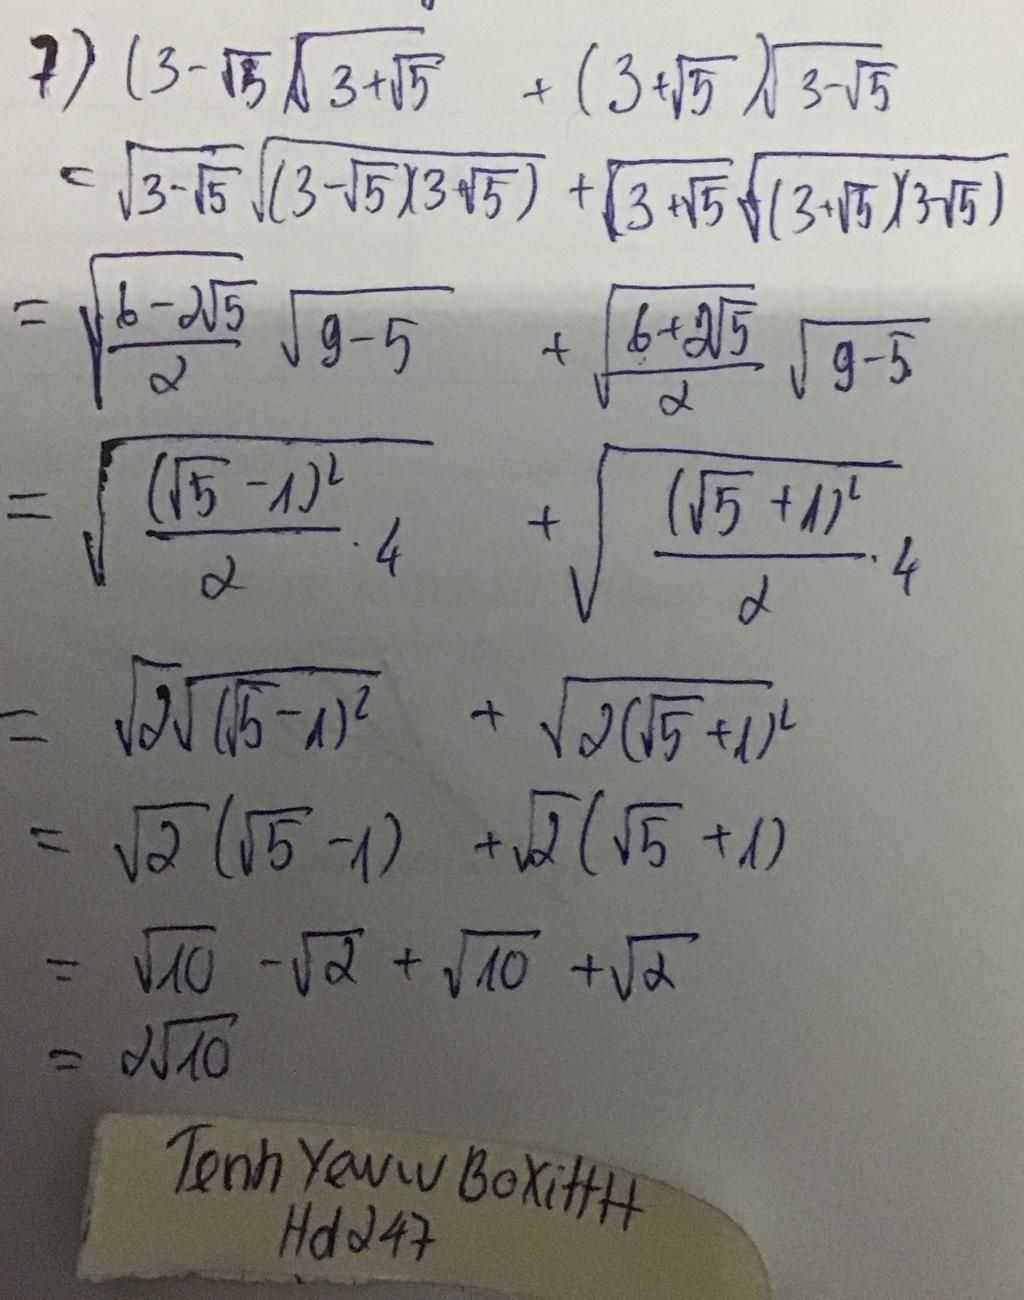 7) (3-√5)√(3+√5) + (3+√5)√(3-√5)
= √(3-√5) √((3-√5)(3+√5)) + √(3+√5) √((3+√5)(3-√5))
= √((6-2√5)/2) √(9-5) + √((6+2√5)/2) √(9-5)
= √((√5-1)²/2 . 4) + √((√5+1)²/2 . 4)
= √2√((√5-1)²) + √(2(√5+1)²)
= √2(√5-1) + √2(√5+1)
= √10 - √2 + √10 + √2
= 2√10
Tenh Yeww BoXiHH
Hd247